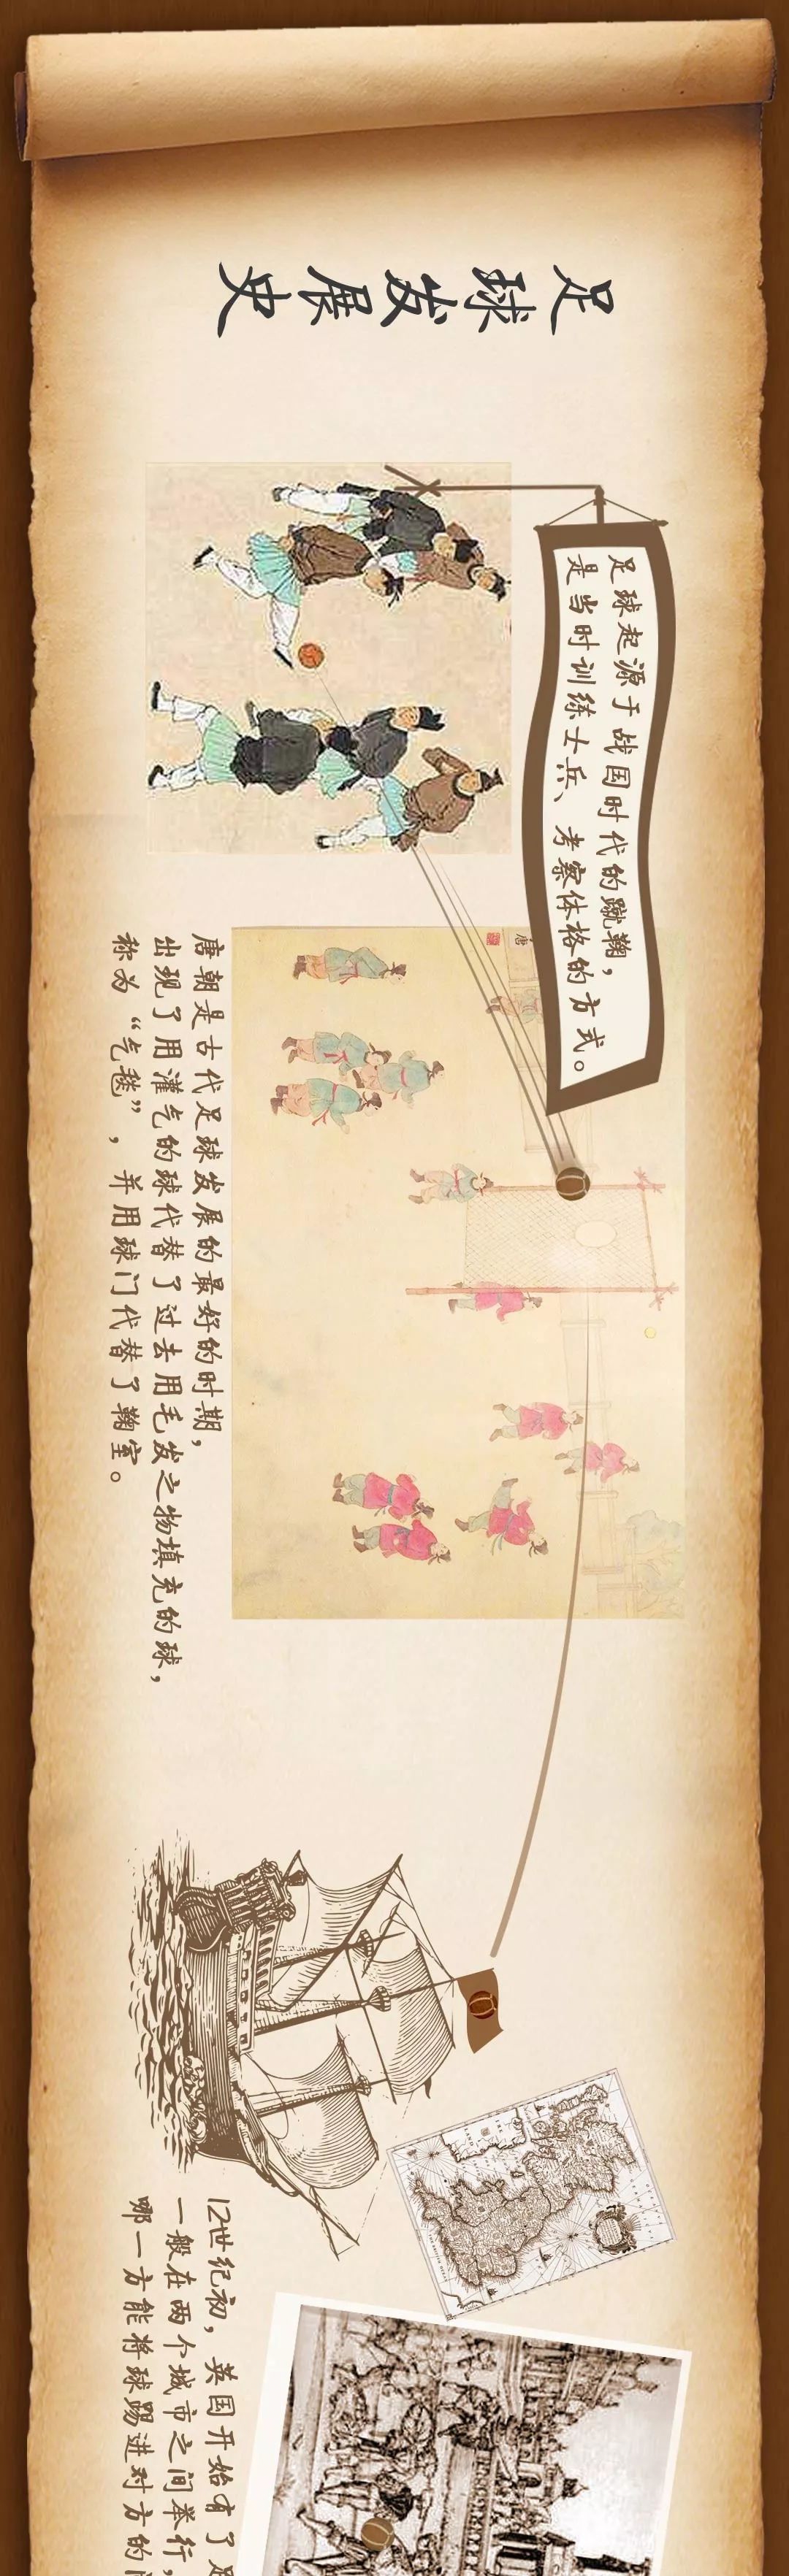 足球发展史
足球起源于战国时代的蹴鞠，
是当时训练士兵、考察体格的方式。
唐朝是古代足球发展的最好的时期，
出现了用灌气的球代替了过去用毛发之物填充的球，
称为“气毬”，并用球门代替了鞠室。
12世纪初，英国开始有了足
一般在两个城市之间举行，
哪一方能将球踢进对方的